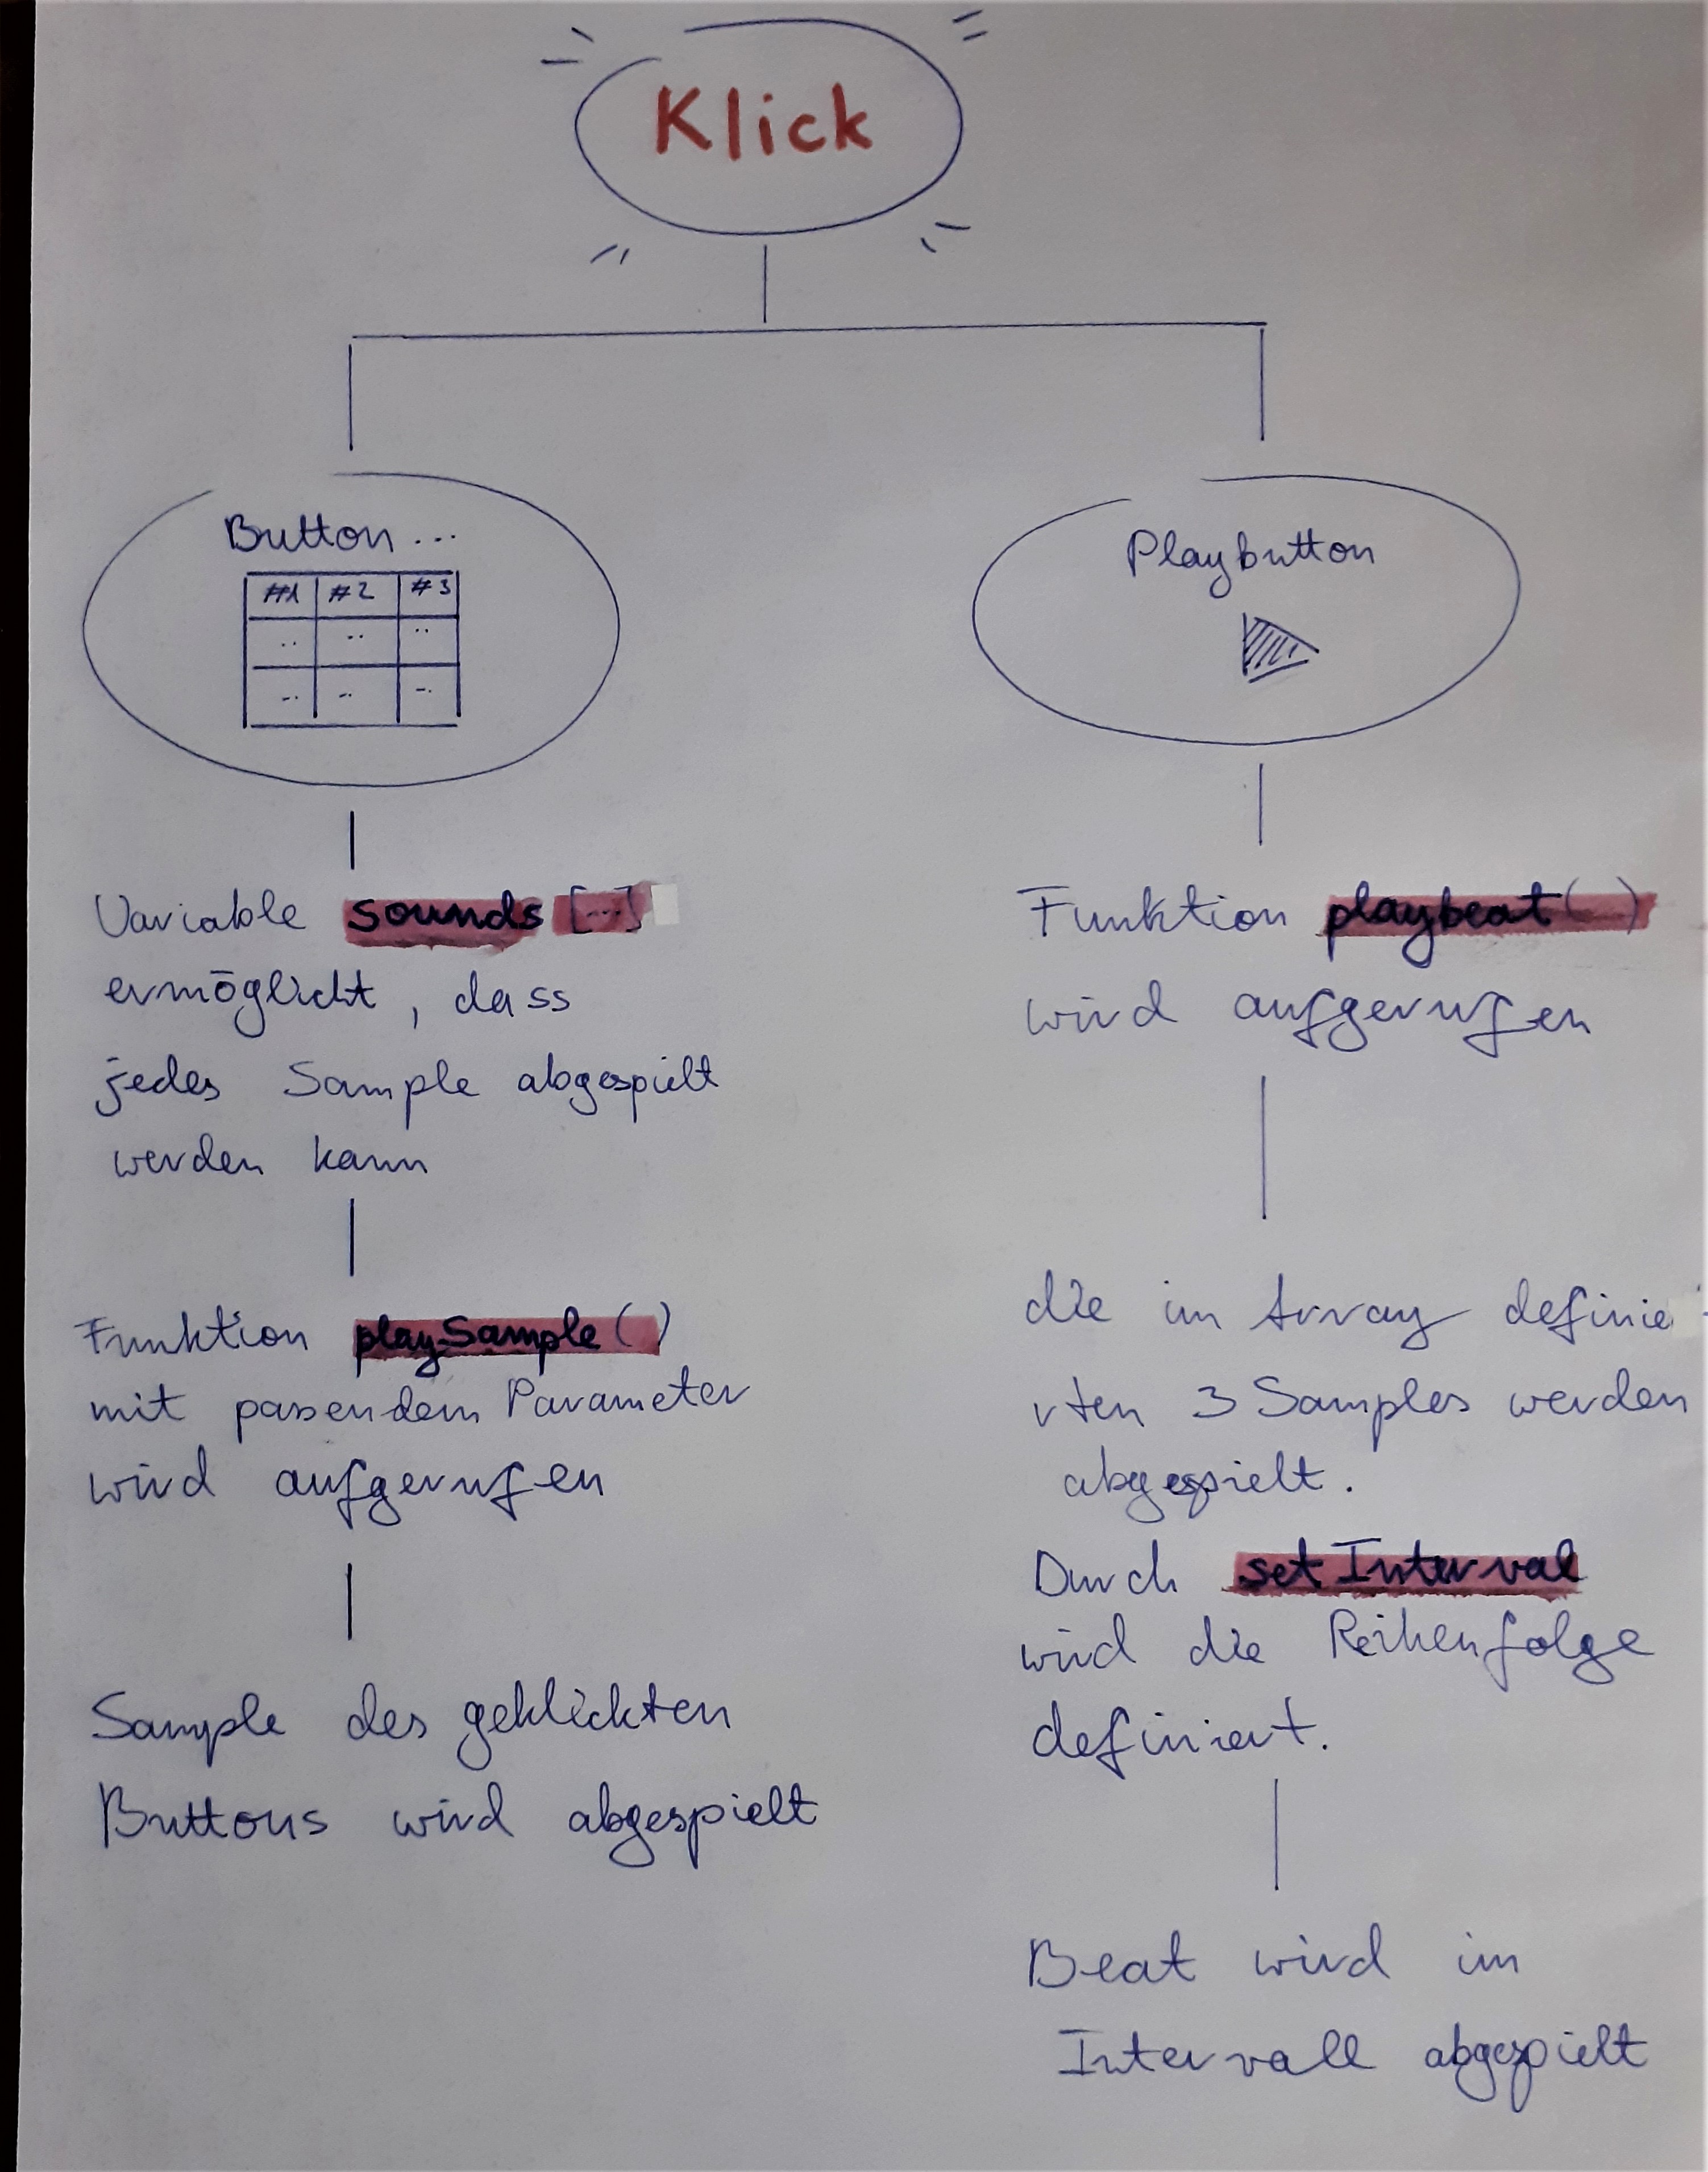 Klick
Button ...
#1 #2 #3
.. .. ..
.. .. ..
Variable sounds [...]
ermöglicht, dass
jedes Sample abgespielt
werden kann
Funktion playSample()
mit passendem Parameter
wird aufgerufen
Sample des geklickten
Buttons wird abgespielt
Playbutton
Funktion playbeat( )
wird aufgerufen
die im Array definie
rten 3 Samples werden
abgespielt.
Durch setInterval
wird die Reihenfolge
definiert.
Beat wird im
Intervall abgespielt